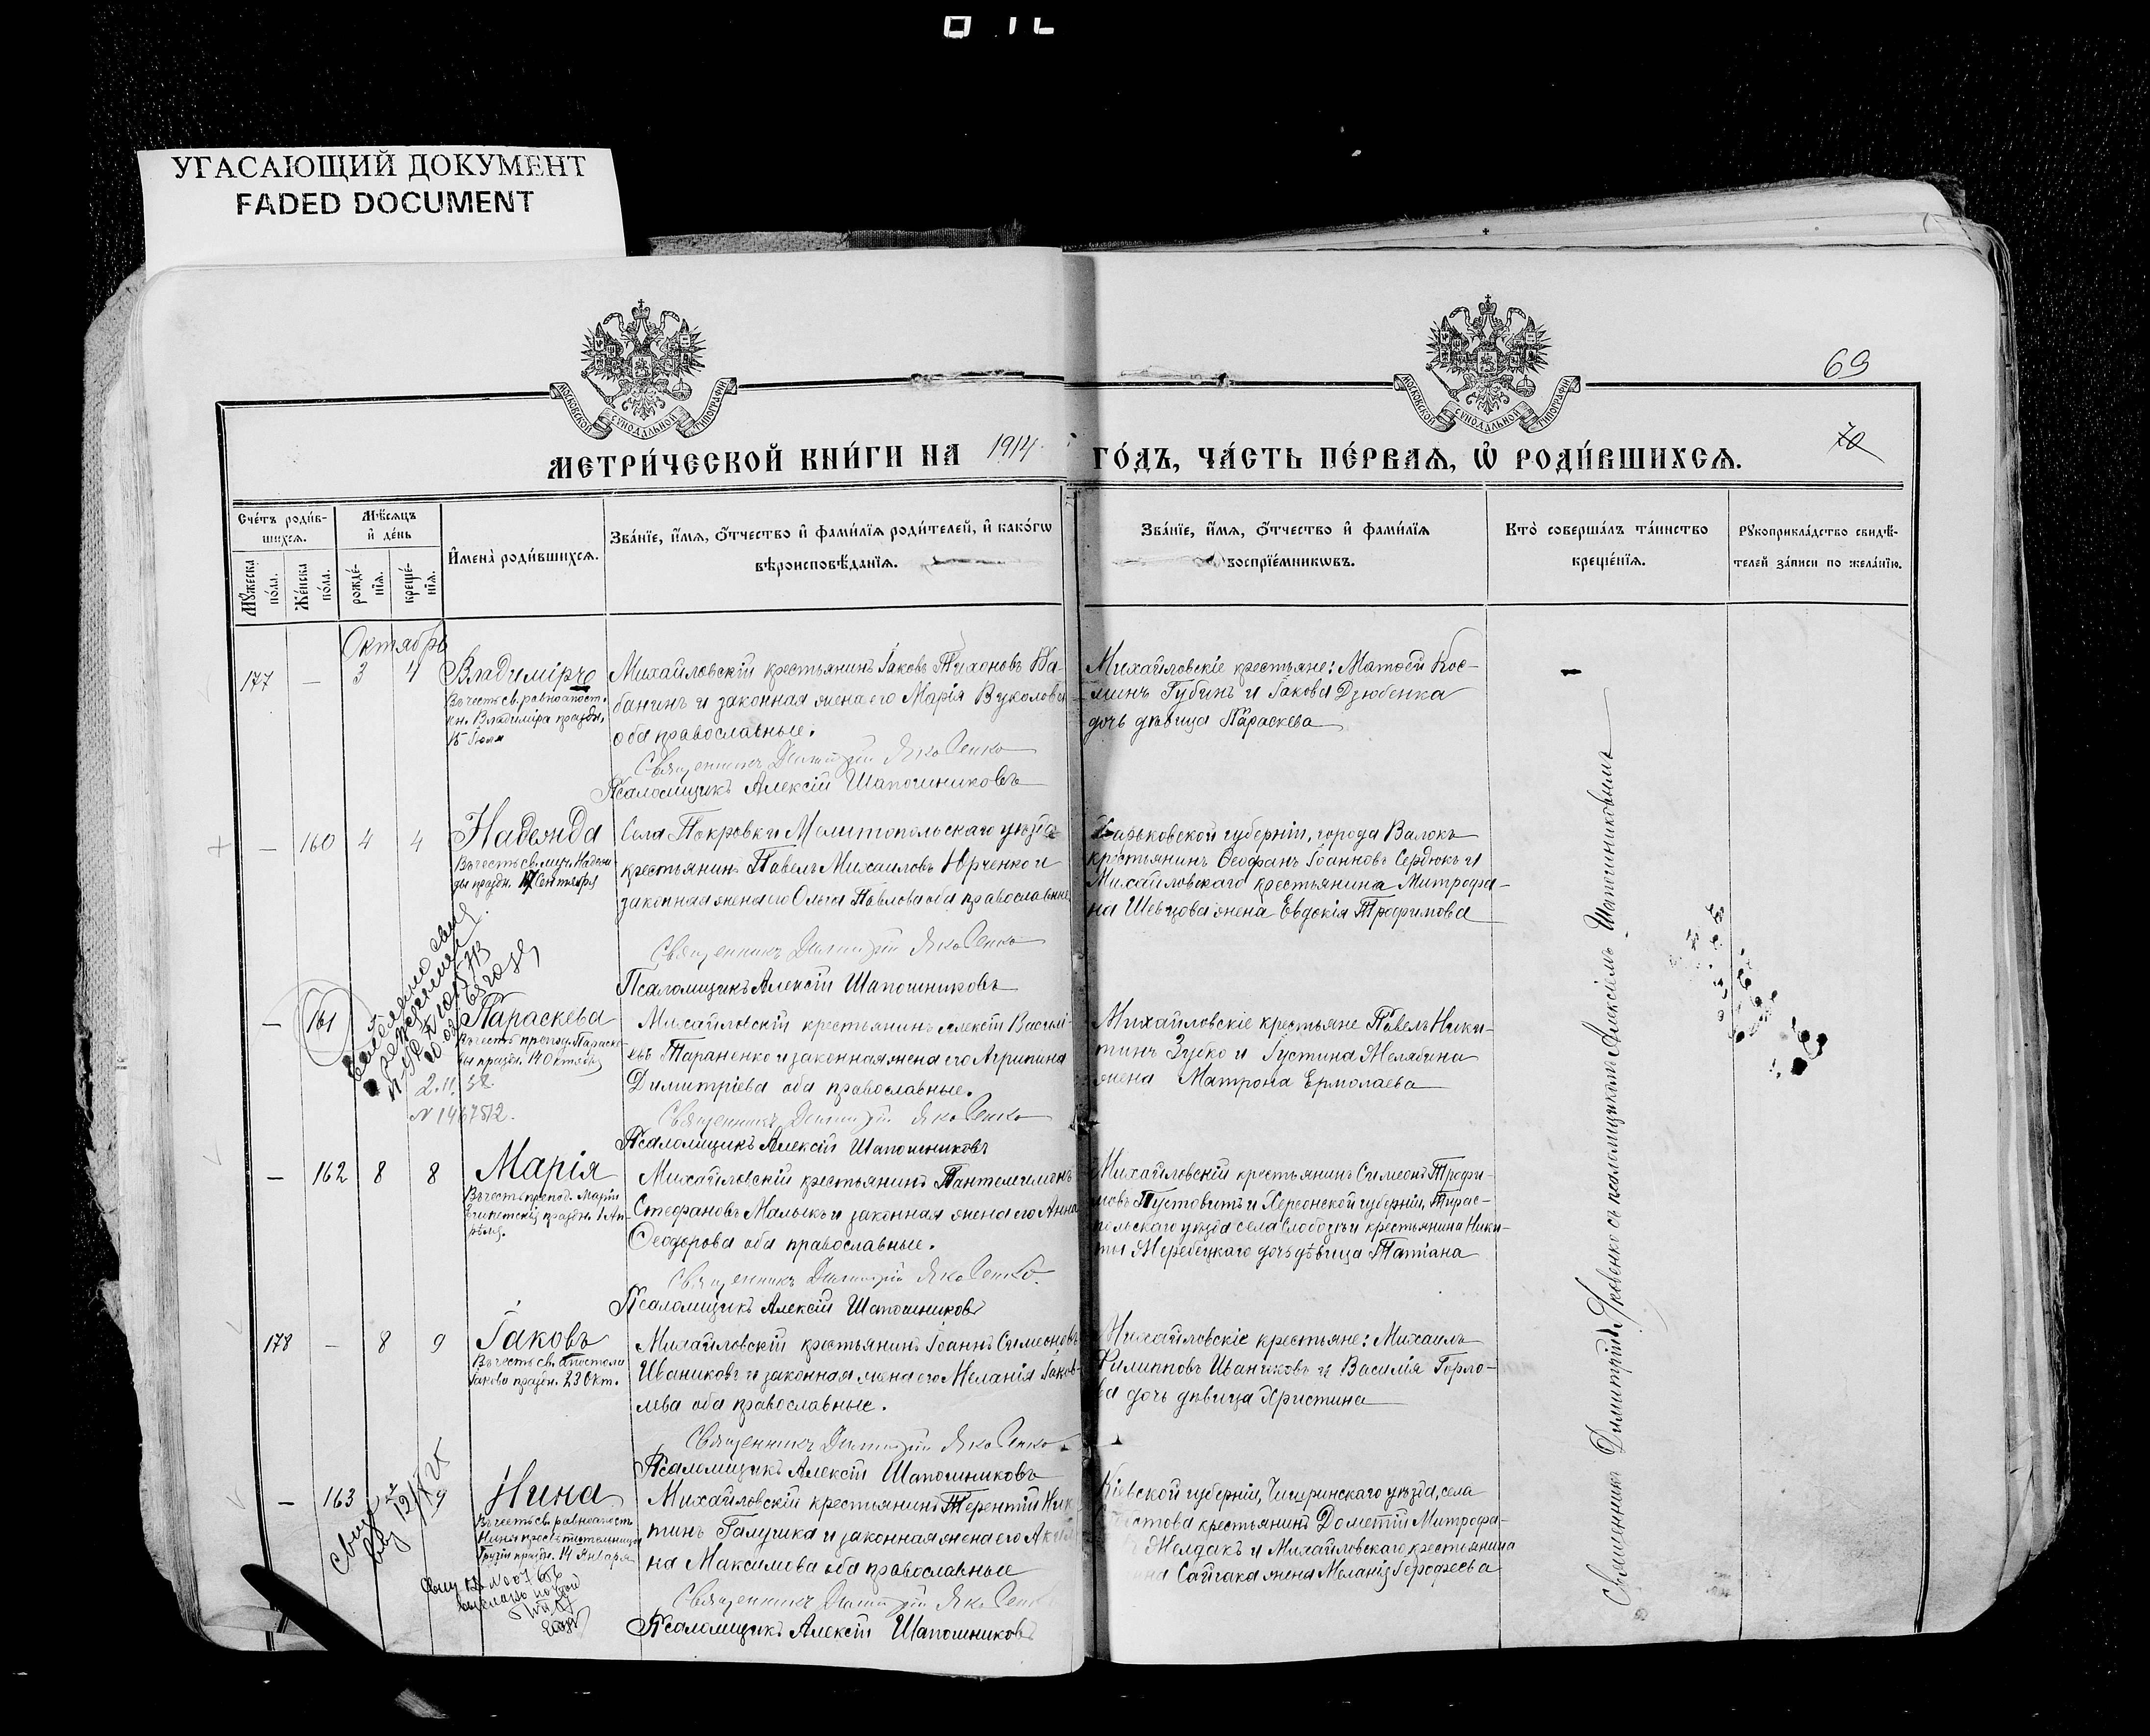 УГАСАЮЩИЙ ДОКУМЕНТ
FADED DOCUMENT
МОСКОВСКОЙ СѴНОДАЛЬНОЙ ТИПОГРАФІИ
МОСКОВСКОЙ СѴНОДАЛЬНОЙ ТИПОГРАФІИ
69
70
МЕТРИ́ЧЕСКОЙ КНИ́ГИ НА 1914 ГО́ДЪ, ЧА́СТЬ ПЕ́РВАѦ, Ѡ҆ РОДИ́ВШИХСѦ.
Сче́тъ роди́в-
шихсѧ.
Мѣ́сѧцъ
и҆ де́нь
Мꙋ́жеска по́ла.
Же́нска по́ла.
рожде́-
нїѧ.
креще́-
нїѧ.
И҆мена̀ роди́вшихсѧ.
Зва́нїе, и҆́мѧ, ѻ҆́тчество и҆ фами́лїѧ роди́телей, и҆ како́гѡ
вѣроисповѣ́данїѧ.
Зва́нїе, и҆́мѧ, ѻ҆́тчество и҆ фами́лїѧ
воспрїе́мникѡвъ.
Кто̀ соверша́лъ та́инство
креще́нїѧ.
Рꙋкоприкла́дство свидѣ́-
телей за́писи по жела́нїю.
Октябрь
177 — 3 4 Владиміръ
Въ честь св. равноапост.
кн. Владиміра праздн.
15 Іюля
Михайловскій крестьянинъ Іаковъ Тихоновъ Ка-
банинъ и законная жена его Марія Вуколова
оба православные.
Священникъ Димитрій Яковенко
Псаломщикъ Алексій Шапошниковъ
Михайловскіе крестьяне: Матѳей Кос-
минъ Губинъ и Іакова Дзюбенка
дочь дѣвица Параскева
— 160 4 4 Надежда
Въ честь св. муч. Надеж-
ды праздн. 17 Сентября
Села Покровки Мелитопольскаго уѣзда
крестьянинъ Павелъ Михаиловъ Юрченко и
законная жена его Ольга Павлова оба православные
Священникъ Димитрій Яковенко
Псаломщикъ Алексій Шапошниковъ
Харьковской губерніи, города Валокъ
крестьянинъ Ѳеофанъ Іоанновъ Сердюкъ и
Михайловскаго крестьянина Митрофа-
на Шевцова жена Евдокія Трофимова
— 161 Параскева
Въ честь препод. Параске-
вы праздн. 14 Октябр.
2.11.52
N 1467512.
Михайловскій крестьянинъ Алексій Василі-
евъ Тараненко и законная жена его Агрипина
Димитріева оба православные.
Священникъ Димитрій Яковенко
Псаломщикъ Алексій Шапошниковъ
Михайловскіе крестьяне Павелъ Ники-
тинъ Зубко и Іустина Желябина
жена Матрона Ермолаева
— 162 8 8 Марія
Въ честь препод. Маріи
Египетскія праздн. 1 Ап-
рѣля.
Михайловскій крестьянинъ Пантелеимонъ
Стефановъ Малыкъ и законная жена его Анна
Ѳеодорова оба православные.
Священникъ Димитрій Яковенко.
Псаломщикъ Алексій Шапошниковъ
Михайловскій крестьянинъ Сѵмеонъ Трофи-
мовъ Пустовитъ и Херсонской губерніи, Тирас-
польскаго уѣзда села Слободзеи крестьянина Ники-
ты Жеребецкаго дочь дѣвица Татіана
178 — 8 9 Іаковъ
Въ честь св. апостола
Іакова праздн. 23 Окт.
Михайловскій крестьянинъ Іоаннъ Сѵмеоновъ
Иваниковъ и законная жена его Меланія Іаков-
лева оба православные.
Священникъ Димитрій Яковенко
Псаломщикъ Алексій Шапошниковъ
Михайловскіе крестьяне: Михаилъ
Филипповъ Иваниковъ и Василія Горло-
ва дочь дѣвица Христина
— 163 9 Нина
Въ честь св. равноапост.
Нины просвѣтительницы
Грузіи праздн. 14 Января
Михайловскій крестьянинъ Терентій Ник
тинъ Галушка и законная жена его
на Максимова оба православные
Священникъ Димитрій Яковенко
Псаломщикъ Алексій Шапошниковъ
Кіевской губерніи, Чигиринскаго уѣзда, села
крестьянинъ Дометій Митрофа-
Желдакъ и Михайловскаго крестьянина
Сайгака жена Меланія Іерофеева
Священникъ Димитрій Яковенко съ псаломщикомъ Алексіемъ Шапошниковымъ